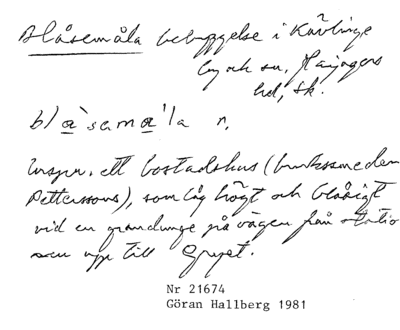 Blåsemåla bebyggelse i Kävlinge
by och sn, Harjagers
hd, Sk.
bla`sema'la n.
Urspr. ett bostadshus (
Petterssons), som låg högt och blåsigt
vid en grändunge på vägen från statio
nen upp till Gryet.
Nr 21674
Göran Hallberg 1981